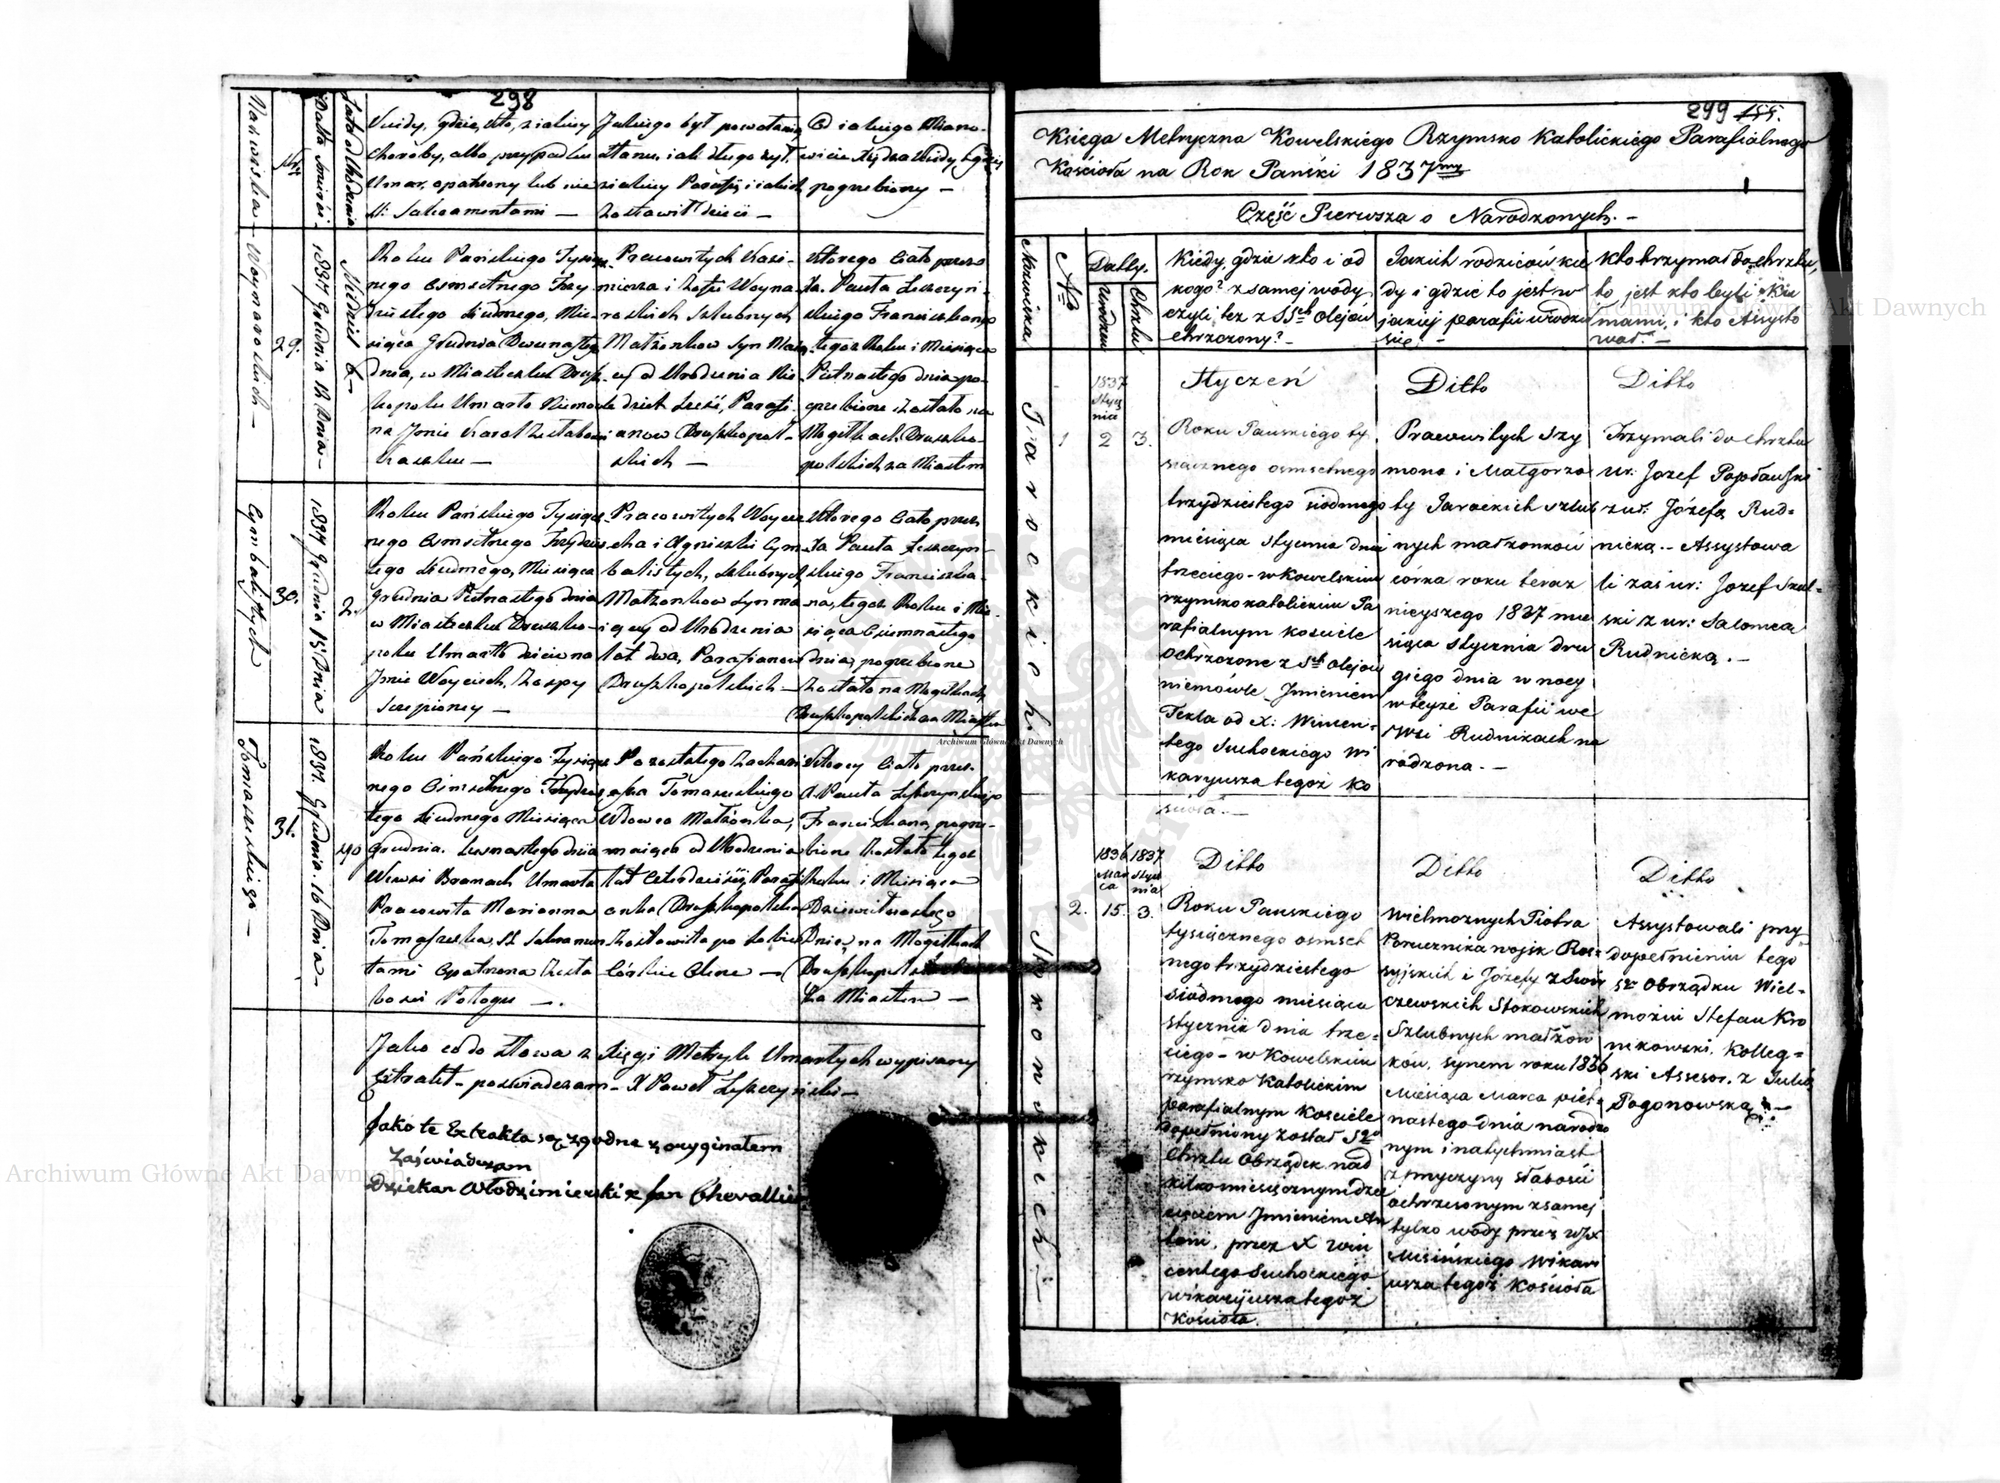 298
Nazwiska
Nr
Datta śmierci
Lata od Urodzenia
Kiedy, gdzie, kto, z jakiey
choroby, albo przypadku
Umar, opatrzony lub nie
SS: Sakramentami —
Jakiego był powołania
stanu, i ak długo żył,
z jakiey Parafii i jakich
zostawił dzieci —
pogrzebiony —
Woynarowskich —
29.
1837 Grudnia 12 Dnia —
Niedziel 6 —
Roku Pańskiego Tysiąc-
nego Osmsetnego Trzy-
dziestego Siudmego, Mie-
siąca Grudnia Dwunastego
dnia, w Miasteczku Druż-
kopolu Umarło Niemowle
na Jmie Karol z słabości
Kaszlu —
Pracowitych Kazi-
mierza i Zofii Woyna-
roskich Szlubnych
Małżonkow Syn Maią-
cy od Urodzenia Nie-
dziel Sześć, Parafi-
anow Drużkopol-
skich —
Ktorego Ciało przez
X. Pawła Leszczyń-
skiego Franciszkana
tegoż Roku i Miesiąca
Pietnastego dnia po-
grzebione zostało na
Mogiłkach Druzko-
polskich za Miastem
Cymbalistych
30.
1837 Grudnia 15 Dnia
2.
Roku Pańskiego Tysiącz-
nego Osmsetnego Trzydzies-
tego Siudmego, Miesiąca
Grudnia Pietnastego dnia
w Miasteczku Druzko-
polu Umarło dziecie na
Jmie Woyciech, z ospy
Sczepioney —
Pracowitych Woycie-
cha i Agnieszki Cym-
balistych, Szlubnych
Małżonkow Syn ma-
iący od Urodzenia
lat dwa, Parafianow
Drużkopolskich —
Ktorego Ciało przez
X. Pawła Leszczyn-
skiego Franciszka-
na, tegoż Roku i Mie-
siąca Siemnastego
dnia, pogrzebione
zostało na Mogiłkach
Drużkopolskich za Miastem
Tomaszewskiego —
31.
1837. Grudnia 16 Dnia —
40
Roku Pańskiego Tysiącz-
nego Osmsetnego Trzydzies-
tego Siudmego Miesiąca
Grudnia Szesnastego dnia
we wsi Boranach Umarła
Pracowita Marianna
Tomaszewska, SS. Sakramen-
tami Opatrzona z sła-
bości Pologu —.
Pozostałego Zachari-
asza Tomaszewskiego
Wdowca Małżonka,
maiąca od Urodzenia
lat Czterdzieści, Parafi-
anka Drużkopolska
zostawiła po sobie
Córkie Olene —
Ktorey Ciało przez
X. Pawła Leszczyńskiego
Franciszkana, pogrze-
bione zostało tegoż
Roku i Miesiąca
Dziewietnastego
Dnia, na Mogiłkach
Drużkopolskich
za Miastem —
Jako co do Słowa z Xięgi Metryk Umarłych wypisany
Extrakt — poswiadczam — X Paweł Leszczyński —
Jako te Extrakta są zgodne z oryginałem
zaświadczam
Dziekan Włodzimierski X Jan Chevallier
299 155.
Księga Metryczna Kowelskiego Rzymsko Katolickiego Parafialnego
Kościoła na Rok Pański 1837my
Część Pierwsza o Narodzonych. —
Nazwiska
No
Datty.
Urodzenia
Chrztu
Kiedy, gdzie kto i od
kogo? z samej wody
czyli też z SSch Olejow
chrzczony? —
Jakich rodziców kie
dy i gdzie to jest w
jakiej parafii urodził
się —
Kto trzymał do chrztu,
to jest kto byli Ku
mami, i kto Assysto
wał. —
Jarockich.
1
1837
Stycznia
2
3.
Styczeń
Roku Panskiego ty
siącznego osmsetnego
trzydziestego siodmego
miesiąca stycznia dnia
trzeciego — w Kowelskim
rzymsko katolickim Pa
rafialnym kościele
ochrzczone z SSch Olejow
niemówle Jmieniem
Tekla od X: Wincen-
tego Suchockiego Wi
karyusza tegoż Ko
ścioła. —
Ditto
Pracowitych Szy
mona i Małgorza
ty Jarockich szlub
nych małżonków
córka roku teraz
nieyszego 1837 mie
siąca stycznia dru
giego dnia w nocy
w teyże Parafii we
wsi Rudnikach na
rodzona. —
Ditto
Trzymali do chrztu
ur: Jozef Popławski
z ur: Józefą Rud=
nicką. — Assystowa
li zaś ur: Jozef Szul-
ski z ur: Salomeą
Rudnicką. —
Stokowskich —
2.
1836
Marca
15.
1837
Stycznia
3.
Ditto
Roku Panskiego
tysiącznego osmset
nego trzydziestego
siódmego miesiąca
stycznia dnia trze-
ciego — w Kowelskim
rzymsko Katolickim
parafialnym Kościele
dopełniony został Sgo
Chrztu Obrządek nad
kilkomiesięcznym dzie
cięciem Jmieniem An
toni, przez X Win
centego Suchockiego
wikaryusza tegoż
Kościoła.
Ditto
Wielmożnych Piotra
Porucznika wojsk Ros=
syjskich i Józefy z
Stokowskich
Szlubnych małżon
ków, synem roku 1836
Miesiąca Marca piet=
nastego dnia narodzo
nym i natychmiast
z przyczyny słabości
ochrzczonym z samej
tylko wody przez
Misińskiego Wikary
usza tegoż Kościoła
Ditto
Assystowali przy
dopełnieniu tego
Sgo Obrządku Wiel-
możni Stefan Kro
nikowski, Kolleg=
ski Assesor. z Julią
Pogonowską. —
Archiwum Główne Akt Dawnych
Archiwum Główne Akt Dawnych
Archiwum Główne Akt Dawnych